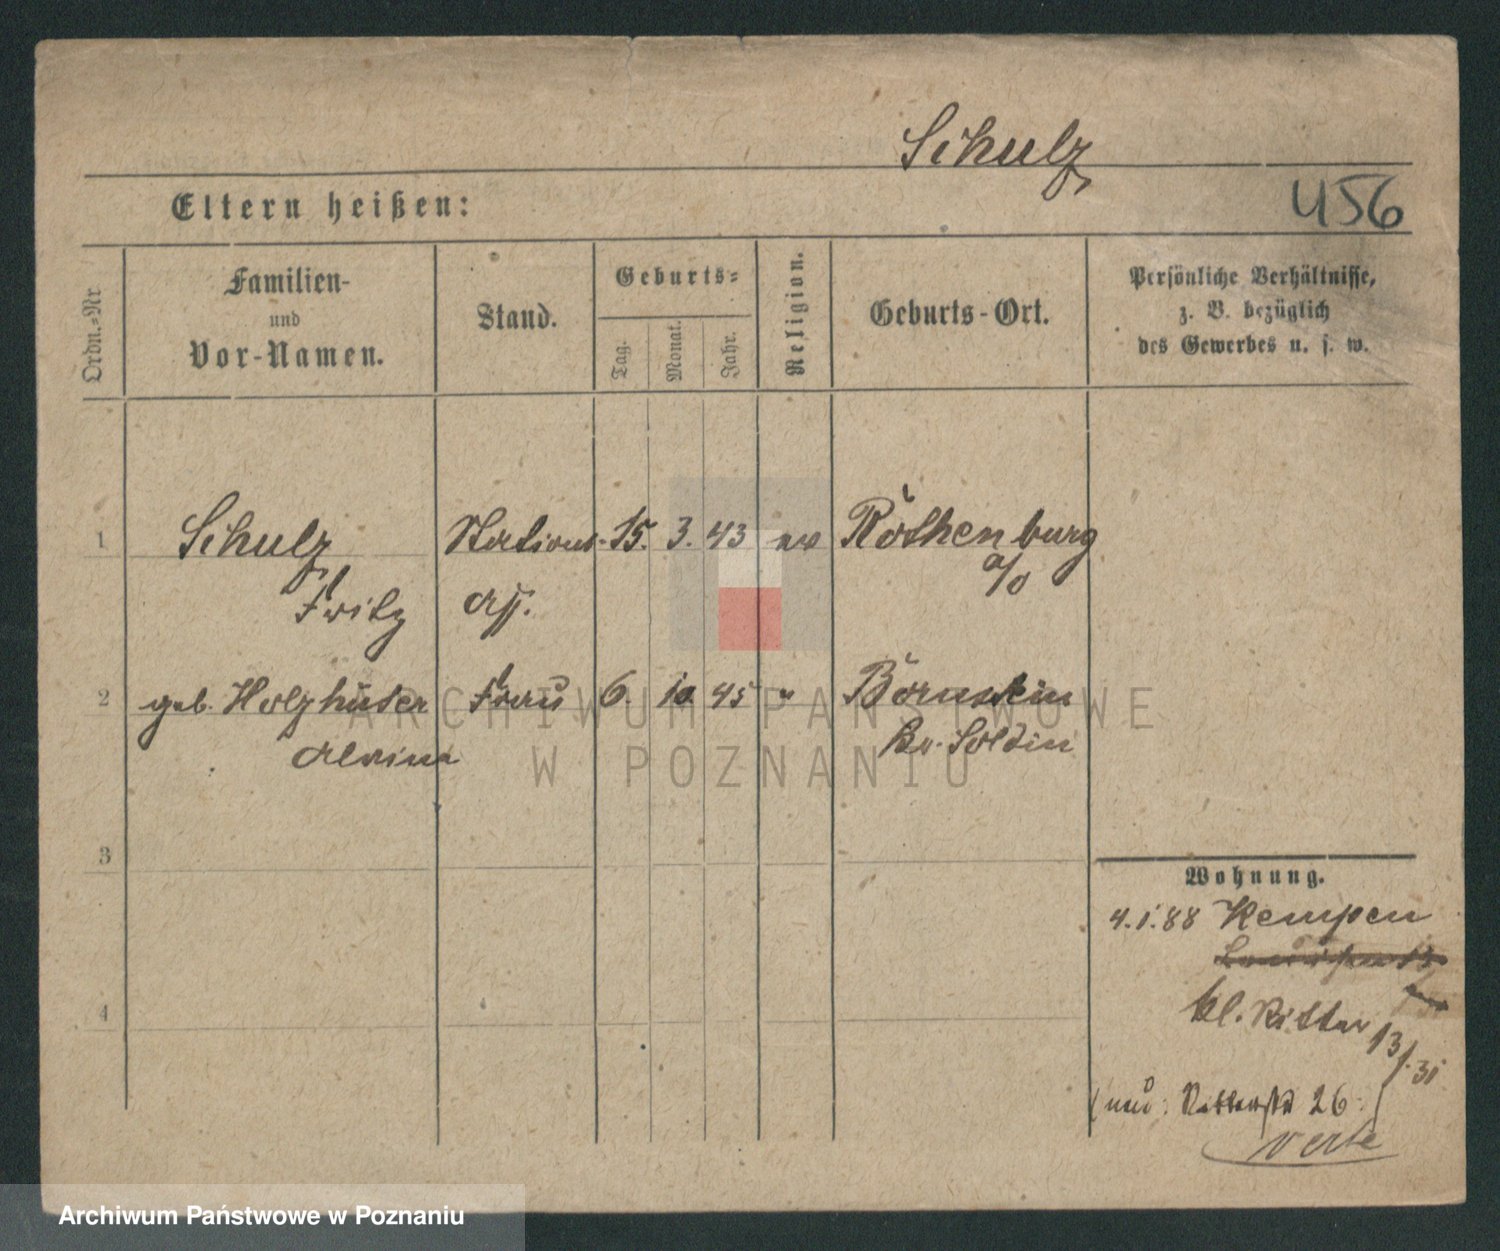 Schulz
456
Eltern heißen:
Ordn.=Nr.
Familien-
und
Vor-Namen.
Stand.
Geburts=
Tag.
Monat.
Jahr.
Religion.
Geburts-Ort.
Persönliche Verhältnisse,
z. B. bezüglich
des Gewerbes u. s. w.
1 Schulz Stations- 15. 3. 43 ev Rothenburg
a/O
Fritz Ass.
2 geb. Holzhüter Frau 6. 10 45 " Bornstein
Kr. Soldin
Alwine
3
Wohnung.
4.1.88 Kempen
4
kl. Ritter
13/31
(neu: Ritterstr 26.)
verte
ARCHIWUM PAŃSTWOWE
W POZNANIU
Archiwum Państwowe w Poznaniu